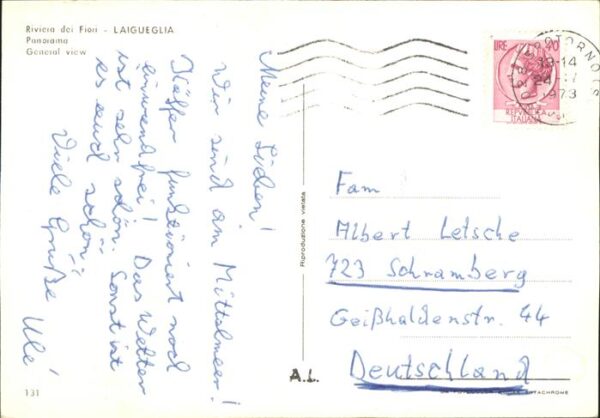 Riviera dei Fiori - LAIGUEGLIA
Panorama
General view
Meine Lieben!
Wir sind am Mittelmeer!
Käffer funktioniert noch
einwandfrei! Das Wetter
ist sehr schön. Sonst ist
es auch schön.
Viele Grüße Ule
LIRE 40
13-14
1973
REPUBBLICA
ITALIANA
Riproduzione vietata
Fam
Albert Letsche
723 Schramberg
Geißhaldenstr. 44
Deutschland
131
A.L.